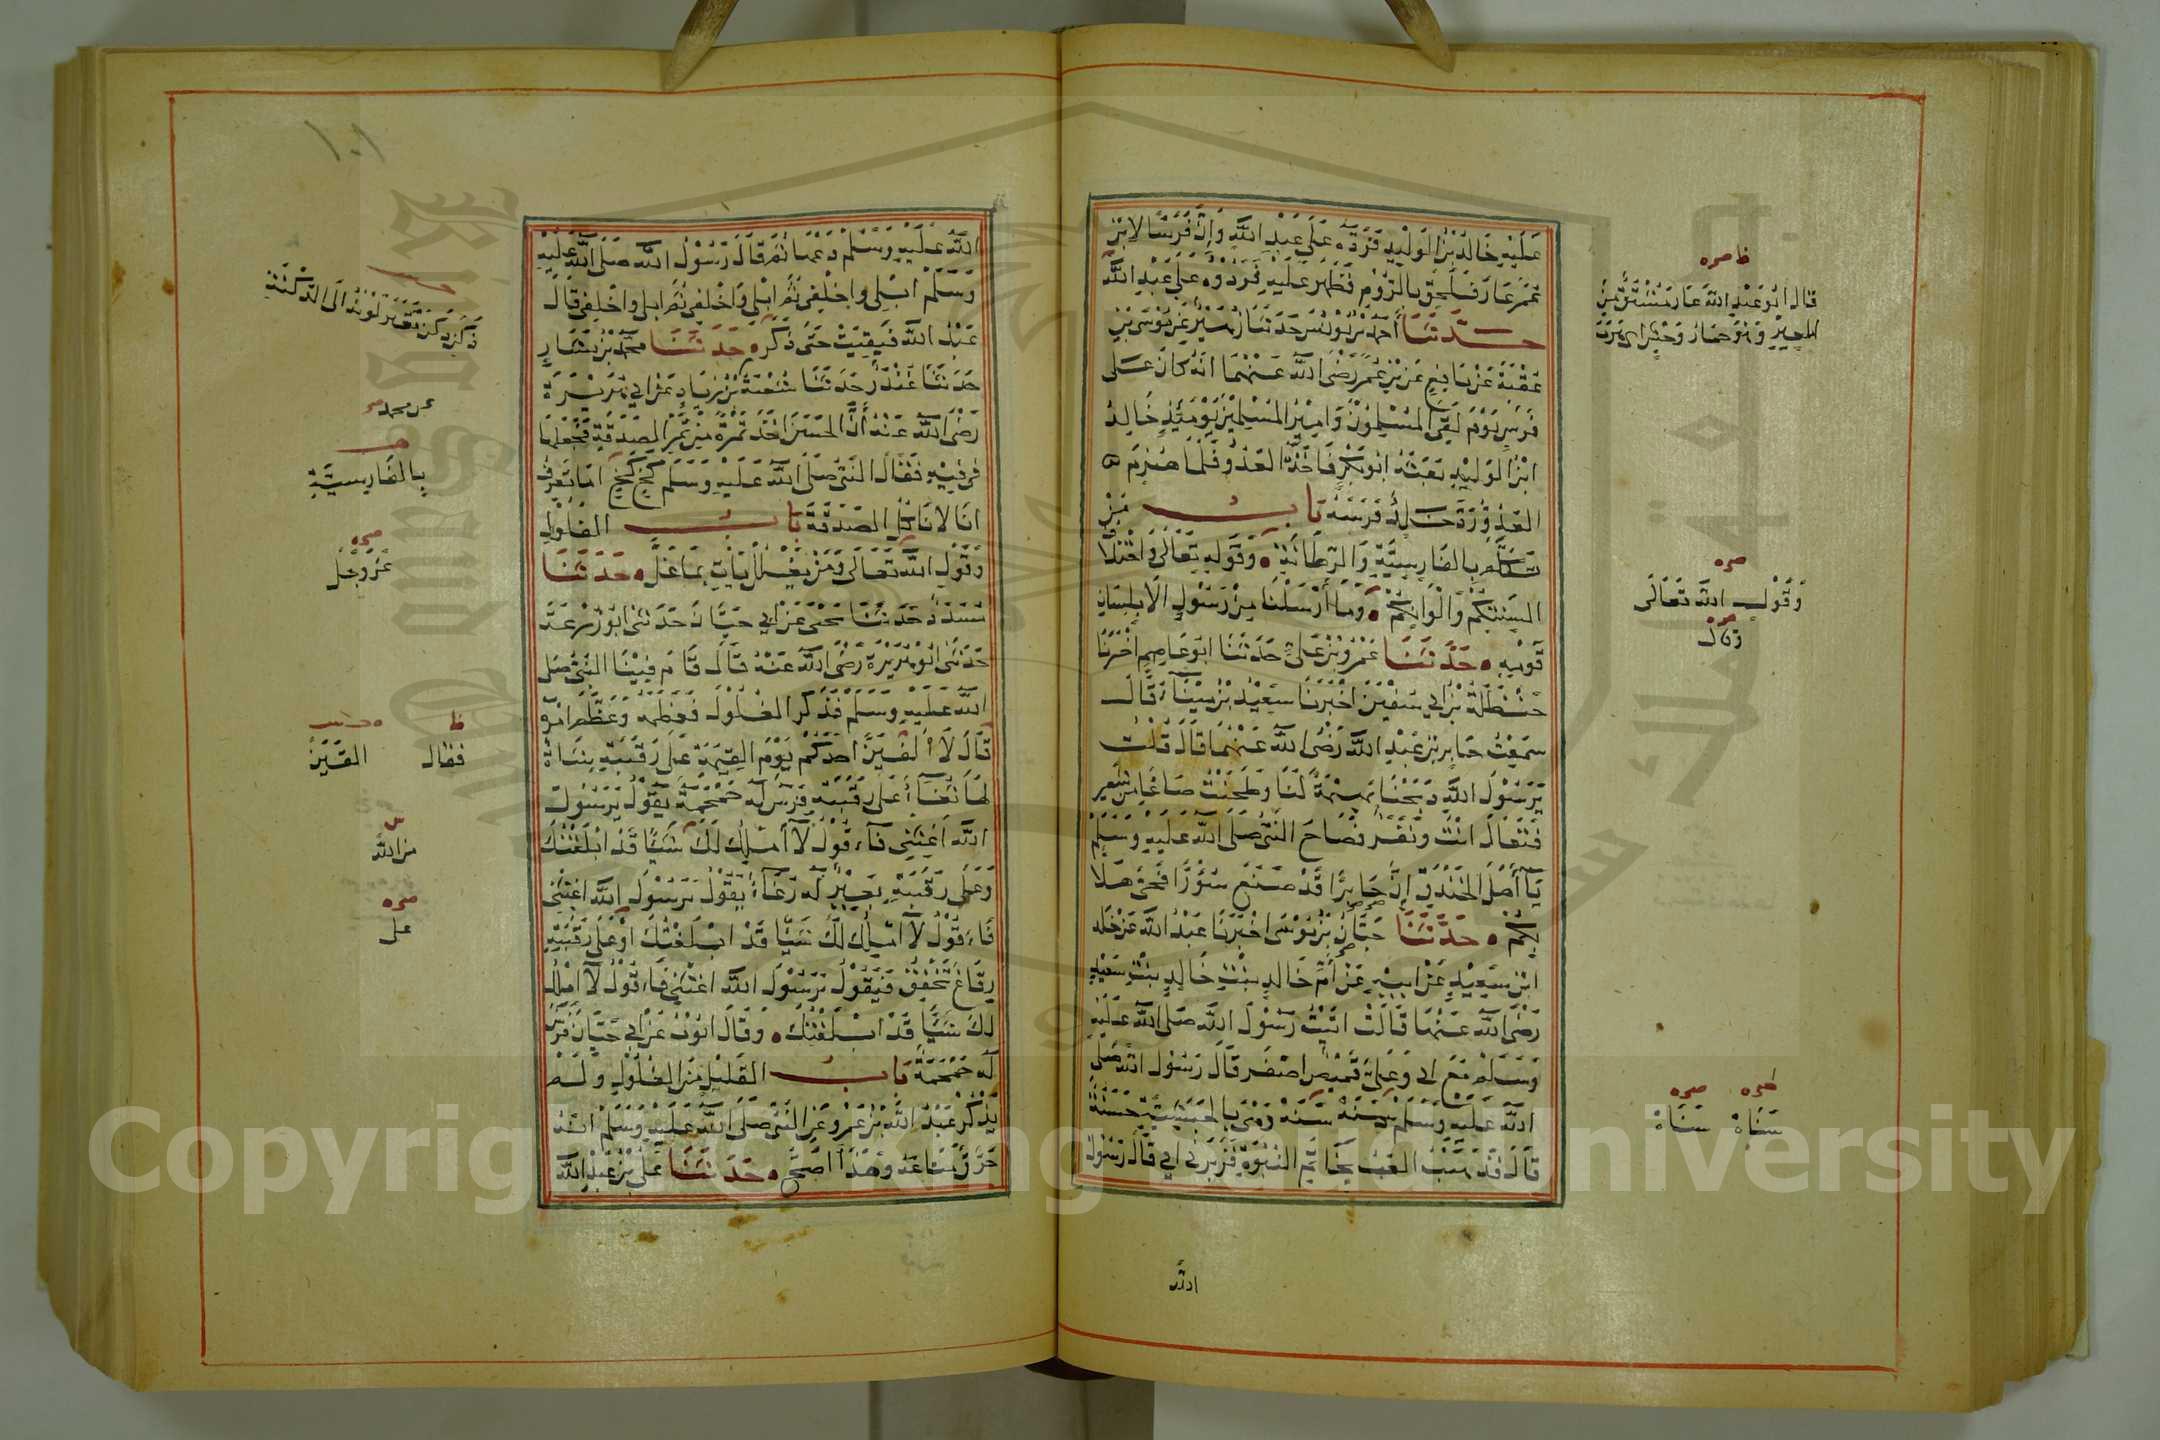 عَلَيْهِ خَالِدُ بْنُ الْوَلِيْدِ فَرَدَّهُ عَلَى عَبْدِ اللَّهِ وَاِنَّ فَرَسًا لابْنِ
عُمَرَ عَارَ فَلَحِقَ بِالرُّوْمِ فَظَهَرَ عَلَيْهِ فَرَدُّوْهُ عَلَى عَبْدِ اللَّه
حَدَّثَنَا أَحْمَدُ بْنُ يُوْنُسَ حَدَثَنَا زُهَيْرٌ عَنْ مُوْسَى بْنِ
عُقْبَةَ عَنْ نَافِعٍ عَنِ بْنِ عُمَرَ رَضِىَ اللَّه عَنْهُمَا اَنَّهُ كَانَ عَلَى
فَرَسٍ يَوْمَ لَقِىَ الْمُسْلِمُوْنَ وَاَمِيْرُ الْمُسْلِمِيْنَ يَوْمَئِذٍ خَالِدُ
ابْنُ الْوَلِيْدِ بَعَثَهُ اَبُوْ بَكْرٍ فَاَخَذَهُ الْعَدُوُّ فَلَمَّا هُزِمَ
الْعَدُوُّ رَدَّ خَالِدٌ فَرَسَهُ بَابُ مَنْ
تَكَلَّمَ بِالْفَارِسِيَّةِ وَالرَّطَانَةِ وَقَوْلِهِ تَعَالَى وَاخْتِلَافُ
اَلْسِنَتِكُمْ وَاَلْوَانِكُمْ وَمَا أَرْسَلْنَا مِنْ رَسُوْلٍ الَّا بِلِسَانِ
قَوْمِهِ حَدَّثَنَا عَمْرُو بْنُ عَلِىٍّ حَدَثَنَا اَبُوْ عَاصِمٍ اَخْبَرَنَا
حَنْظَلَةُ بْنُ اَبِي سُفْيَنَ اَخْبَرَنَا سَعِيْدُ بْنُ مِيْنَآءَ قَالَ
سَمِعْتُ جَابِرَ بْنَ عَبْدِ اللَّهِ رَضِىَ اللَّه عَنْهُمَا قَالَ قُلْتُ
يَرَسُوْلَ اللَّهِ ذَبَحْنَا بُهَيْمَةً لَنَا وَطَحَنْتُ صَاعًا مِنْ شَعِيْرٍ
فَتَعَالَ اَنْتَ وَنَفَرٌ فَصَاحَ النَّبِىُّ صَلَى اللَّه عَلَيْهِ وَسَلَّمَ
يَآ أَهْلَ الْخَنْدَقِ اِنَّ جَابِرًا قَدْ صَنَعَ سُؤْرًا فَحَىَّ هَلَا
بِكُمْ حَدَّثَنَا حِبَّانُ بْنُ مُوْسَى اَخْبَرَنَا عَبْدُ اللَّه عَنْ خَالِد
ابْنِ سَعِيْدٍ عَنْ اَبِيْهِ عَنْ أُمِّ خَالِدٍ بِنْتِ خَالِدِ بْنِ سَعِيْدٍ
رَضِىَ اللَّه عَنْهَا قَالَتْ اَتَيْتُ رَسُوْلَ اللَّه صَلَى اللَّه عَلَيْهِ
وَسَلَمَ مَعَ اَبِى وَعَلَىَّ قَمِيْصٌ اَصْفَرُ قَالَ رَسُوْلُ اللَّه صَلَى
اللَّه عَلَيْهِ وَسَلَمَ سَنَهْ سَنَهْ وَهِىَ بِالْحَبَشِيَّةِ حَسَنَةٌ
قَالَتْ فَذَهَبْتُ اَلْعَبُ بِخَاتَمِ النُّبُوَّةِ فَزَبَرَنِي اَبِي قَالَ رَسُوْلُ
اللَّه
ظ صح ه
قال اَبُو عَبْدِ اللَّه عَارَ مُشْتَقٌّ مِنَ
العَيْرِ وَهُوَ حِمَارُ وَحْشٍ اى هَرَبَ
صح ه
وَقَوْلِ اللَّه تَعَالَى
وَقَالَ
صح ه
سَنَاهْ سَنَاهْ
اللَّه عَلَيْهِ وَسَلَمْ دَعْهَا ثُمَّ قَالَ رَسُوْلُ اللَّه صَلَى اللَّه عَلَيْهِ
وَسَلَّمَ اَبْلِى وَاخْلِفِى ثُمَّ اَبْلِى وَاَخْلِفِى ثُمَّ اَبْلِى وَاخْلِفِى قَالَ
عَبْدُ اللَّه فَبَقِيَتْ حَتَّى ذَكَرَ حَدَثَنَا مُحَمَّدُ بْنُ بَشَّارٍ
حَدَثَنَا غُنْدَرٌ حَدَثَنَا شُعْبَةُ عَنْ زِيَادٍ عَنْ اَبِي هُرَيْرَةَ
رَضِىَ اللَّه عَنْهُ أَنَّ الْحَسَنَ اَخَذَ تَمْرَةً مِنْ تَمْرِ الصَدَقَةِ فَجَعَلَهَا
فِى فِيْهِ فَقَالَ النَّبِىُّ صَلَى اللَّه عَلَيْهِ وَسَلَمَ كَخٍ كَخٍ اَمَا تَعْرِفُ
اَنَّا لَا نَاْكُلُ الصَّدَقَةَ بَابُ الْغُلُوْلِ
وَقَوْلِ اللَّه تَعَالَى وَمَنْ يَغْلُلْ يَاْتِ بِمَا غَلَّ حَدَثَنَا
مُسَدَّدٌ حَدَثَنَا يَحْيَى عَنْ اَبِي حَيَّانَ حَدَثَنِى اَبُوْ زُرْعَةَ
حَدَثَنِى اَبُوْ هُرَيْرَةَ رَضِىَ اللَّه عَنْهُ قَالَ قَامَ فِيْنَا النَّبِىُّ صَلَى
اللَّه عَلَيْهِ وَسَلَّمَ فَذَكَرَ الْغُلُوْلَ فَعَظَّمَهُ وَعَظَّمَ اَمْرَهُ
قَالَ لَا أُلْفِيَنَّ اَحَدَكُمْ يَوْمَ الْقِيَمَةِ عَلَى رَقَبَتِهِ شَاةٌ
لَهَا ثُغَآءٌ عَلَى رَقَبَتِهِ فَرَسٌ لَهُ حَمْحَمَةٌ يَقُوْلُ يَرَسُوْلَ
اللَّه اَغِثْنِى فَاَقُوْلُ لَا أَمْلِكُ لَكَ شَيْئًا قَدْ اَبْلَغْتُكَ
وَعَلَى رَقَبَتِهِ بَعِيْرٌ لَهُ رُغَآءٌ يَقُوْلُ يَرَسُوْلَ اللَّه اَغِثْنِى
فَاَقُوْلُ لَا أَمْلِكُ لَكَ شَيْئًا قَدْ اَبْلَغْتُكَ اَوْ عَلَى رَقَبَتِهِ
رِقَاعٌ تَخْفِقُ فَيَقُوْلُ يَرَسُوْلَ اللَّه اَغِثْنِى فَاَقُوْلُ لَا أَمْلِكُ
لَكَ شَيْئًا قَدْ اَبْلَغْتُكَ وَقَالَ اَيُّوْبُ عَنْ اَبِي حَيَّانَ فَرَسٌ
لَهُ حَمْحَمَةٌ بَابُ الْقَلِيْلِ مِنَ الْغُلُوْلِ وَلَمْ
يَذْكُرْ عَبْدُ اللَّه بْنُ عَمْرٍو عَنِ النَّبِىِّ صَلَى اللَّه عَلَيْهِ وَسَلَمَ اَنَّهُ
حَرَّقَ مَتَاعَهُ وَهَذَا اَصَحُّ حَدَثَنَا عَلِىُّ بْنُ عَبْدِ اللَّه
١٠١
عن محمد
بِالْفَارِسِيَّةِ
صح ه
عَزَّ وَجَلَّ
فقال
من اللَّه
صح ه
على
Copyright © King Saud University